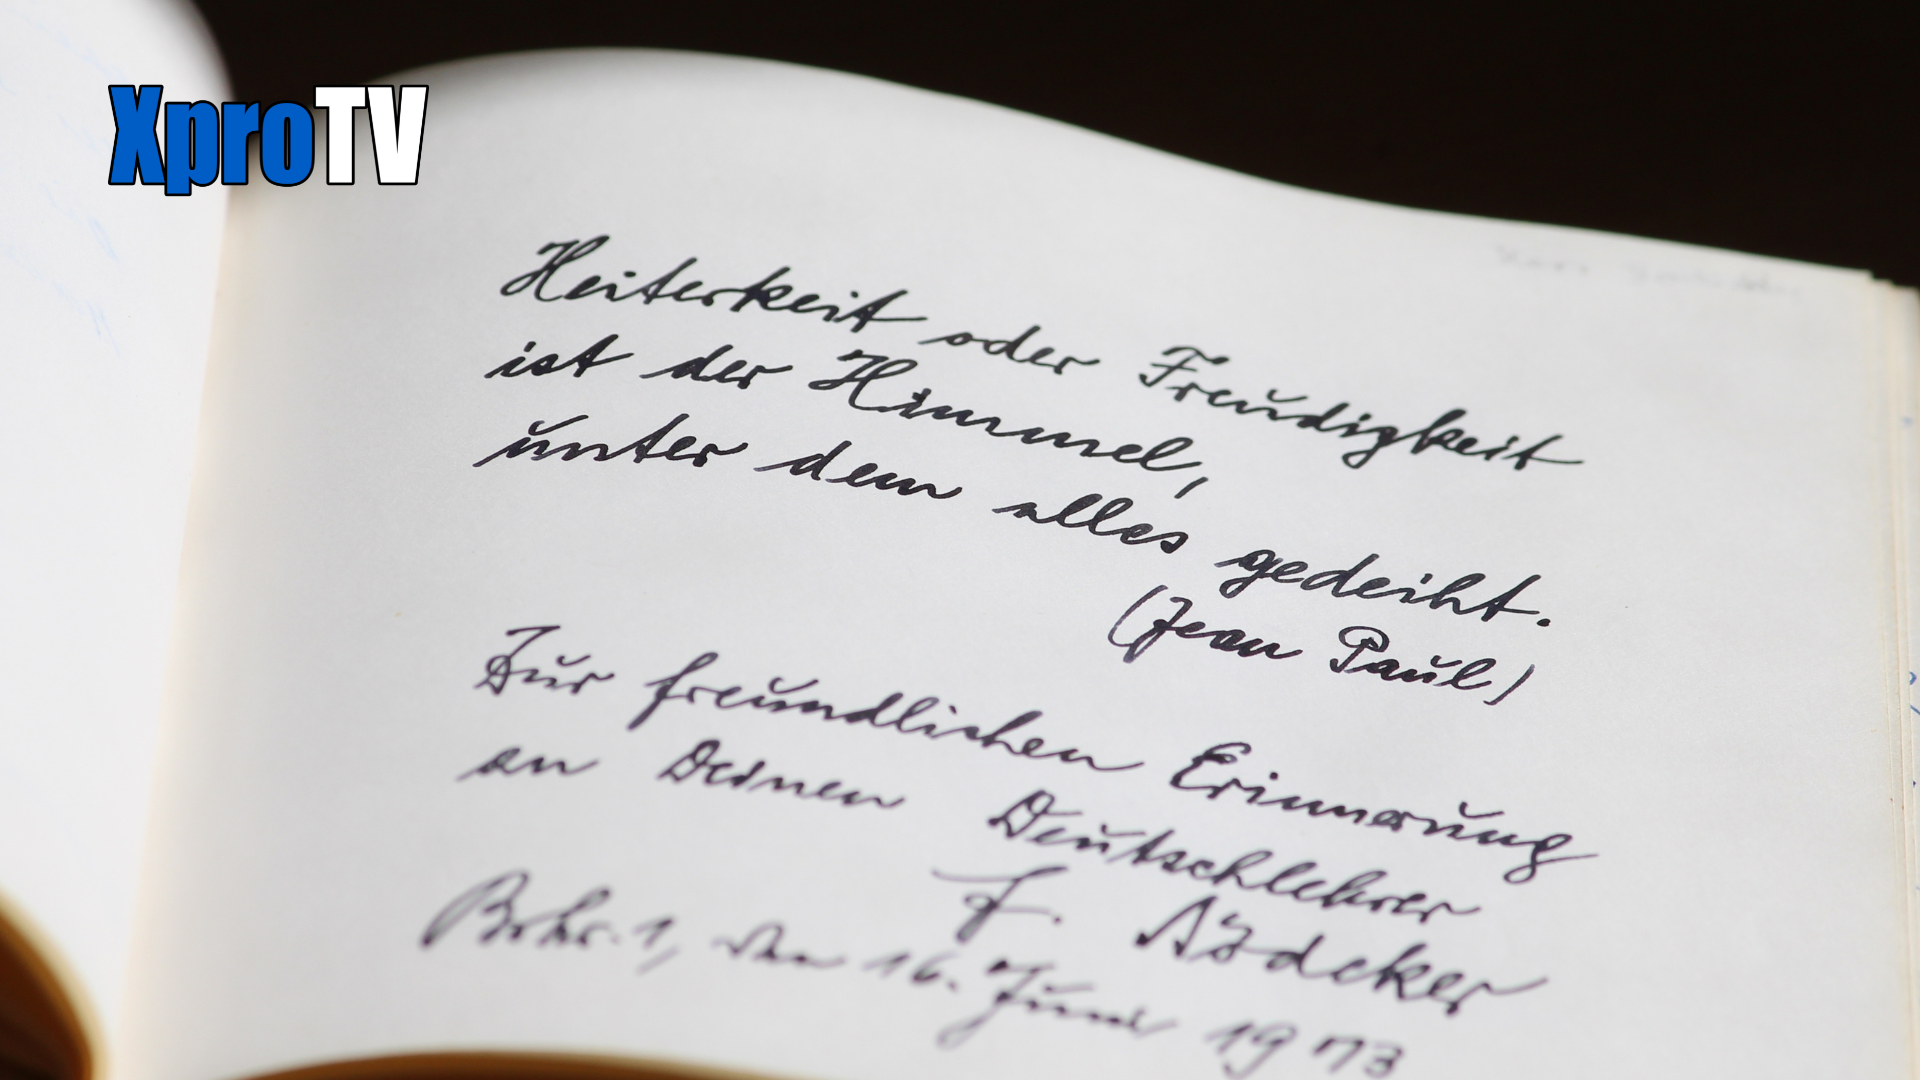 XproTV
Heiterkeit oder Freudigkeit
ist der Himmel,
unter dem alles gedeiht.
(Jean Paul)
Zur freundlichen Erinnerung
an Deinen Deutschlehrer
F.
den 16. Juni 1973